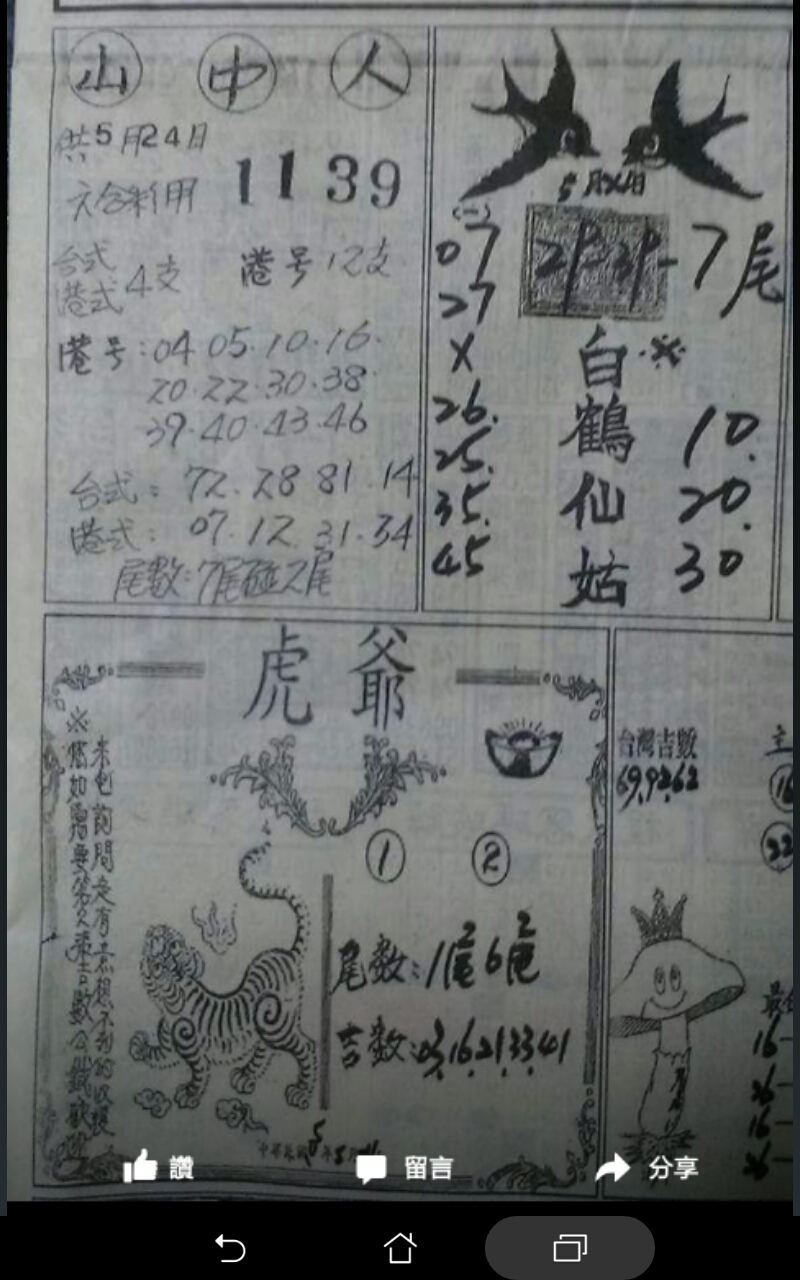 山 中 人
供5月24日
六合彩用 1139
台式
港式 4支 港号 12支
港号:04 05.10.16.
20.22.30.38.
39.40.43.46
台式:72.28 81.14
港式:07.12.31.34
尾數:7尾碰2尾
5月24日
(一)
07
27
X
26.
25.
35.
45
7尾
白※
鶴
仙
姑
10.
20.
30
虎爺
※
① ②
尾數:1尾 6尾
2 2
吉數:03.16.21.33.41
台灣吉數
69.92.62
主
16
22
16
26
16
26
讚 留言 分享